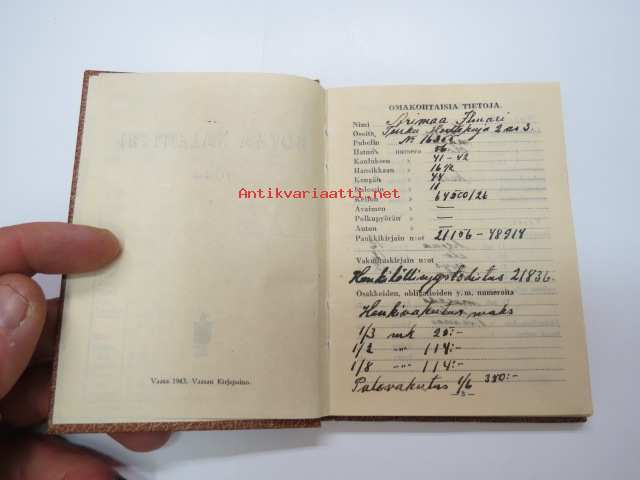 Vaasa 1943. Vaasan Kirjapaino.
Antikvariaatti.net
OMAKOHTAISIA TIETOJA.
Nimi Arimaa Ilmari
Osoite, Turku 2 as 3.
Puhelin N:o
Hatun numero 56
Kauluksen » 41-42
Hansikkaan »
Kengän » 44
Kalossin » 11
Kellon »
Avaimen » —
Polkupyörän » —
Auton »
Pankkikirjain n:ot 21106 - 48914
Vakuutuskirjain n:ot
21836.
Osakkeiden, obligatioiden y. m. numeroita
Henkivakuutus maks
1/3 mk 20:-
1/2 -"- 114:-
1/8 -"- 114:-
Palovakutus 1/6 380:-